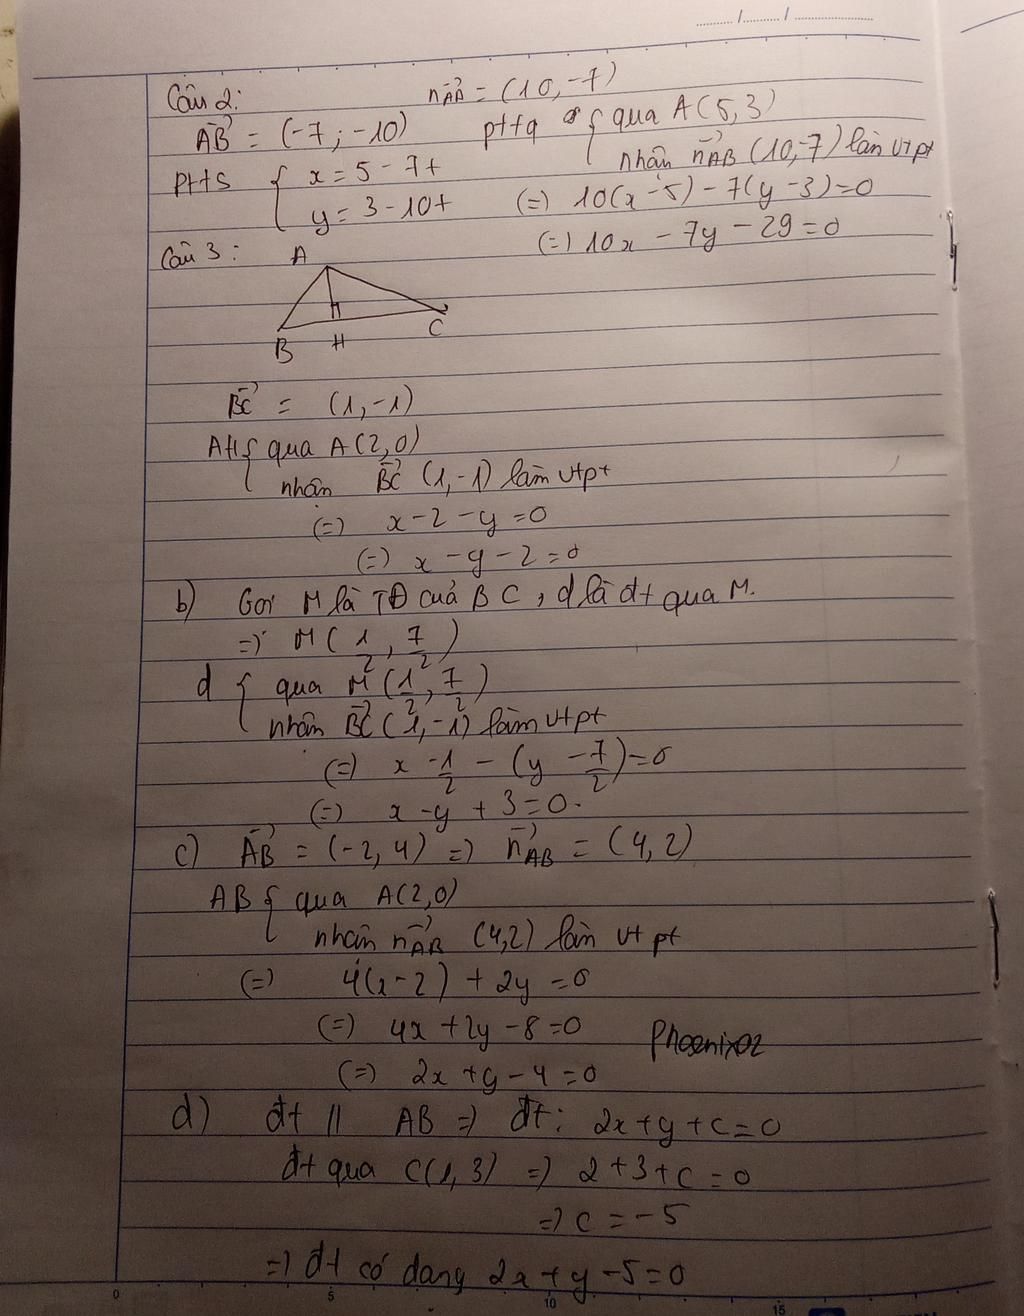 Câu 2:
n⃗AB = (10, -7)
A⃗B = (-7; -10)
pttq { qua A(5, 3)
nhân n⃗AB (10, -7) làm vtpt
Ptts { x = 5 - 7t
y = 3 - 10t
(=) 10(x - 5) - 7(y - 3) = 0
(=) 10x - 7y - 29 = 0
Câu 3:
A
B H C
B⃗C = (1, -1)
AH { qua A(2, 0)
nhân B⃗C (1, -1) làm vtpt
(=) x - 2 - y = 0
(=) x - y - 2 = 0
b) Gọi M là TĐ cuả BC, d là đt qua M.
=) M(1/2, 7/2)
d { qua M(1/2, 7/2)
nhân B⃗C (1, -1) làm vtpt
(=) x - 1/2 - (y - 7/2) = 0
(=) x - y + 3 = 0.
c) A⃗B = (-2, 4) =) n⃗AB = (4, 2)
AB { qua A(2, 0)
nhân n⃗AB (4, 2) làm vtpt
(=) 4(x - 2) + 2y = 0
(=) 4x + 2y - 8 = 0
Phoenixoz
(=) 2x + y - 4 = 0
d) đt // AB =) đt: 2x + y + c = 0
đt qua C(1, 3) =) 2 + 3 + c = 0
=) c = -5
=) đt có dang 2x + y - 5 = 0
0 5 10 15